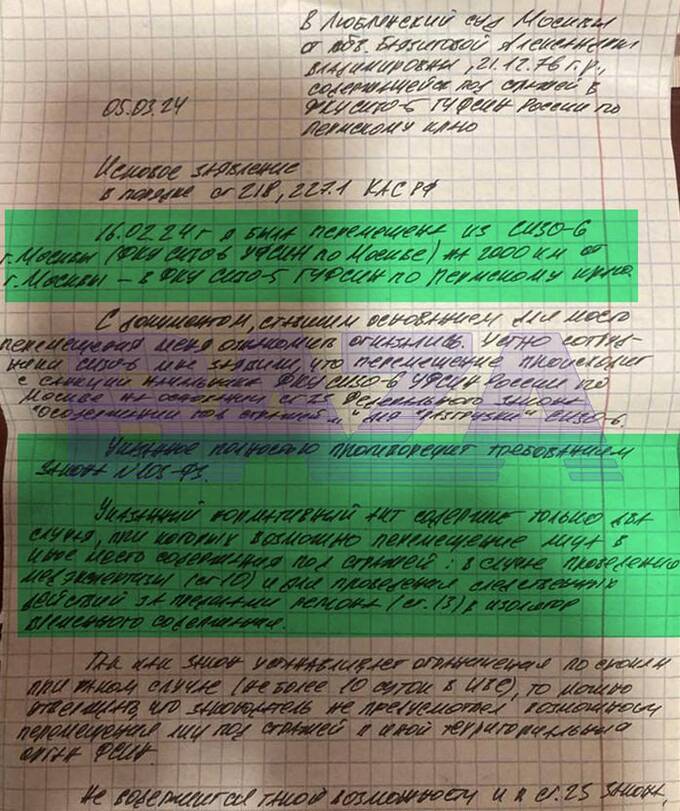 В Люблинский суд Москвы
от обв. Баязитовой Александры
Владимировны, 21.12.76 г.р.,
содержащейся под стражей в
ФКУ СИЗО-5 ГУФСИН России по
Пермскому краю
05.03.24
Исковое заявление
в порядке ст 218, 227.1 КАС РФ
16.02.24 г я была перемещена из СИЗО-6
г. Москвы (ФКУ СИЗО-6 УФСИН по Москве) на 2000 км от
г. Москвы – в ФКУ СИЗО-5 ГУФСИН по Пермскому краю.
С документом, ставшим основанием для моего
перемещения меня ознакомить отказались. Устно сотруд-
ники СИЗО-6 мне заявили, что перемещение происходит
с санкции начальника ФКУ СИЗО-6 УФСИН России по
Москве на основании ст 25 Федерального закона
"О содержании под стражей..." для "разгрузки" СИЗО-6.
BAZA
Указанное полностью противоречит требованиям
закона N103-ФЗ.
Указанный нормативный акт содержит только два
случая, при которых возможно перемещение лица в
иное место содержания под стражей: в случае проведения
медэкспертизы (ст 10) и для проведения следственных
действий за пределами региона (ст. 13) в изолятор
временного содержания.
Так как закон устанавливает ограничения по срокам
при таком случае (не более 10 суток в ИВС), то можно
утверждать, что законодатель не предусмотрел возможности
перемещения лиц под стражей в иной территориальный
орган ФСИН.
Не содержится такой возможности и в ст. 25 закона,